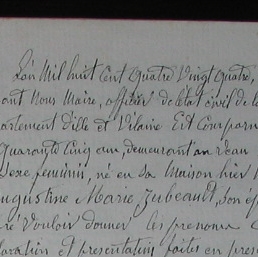 L'an Mil huit Cent Quatre Vingt Quatre,
Nous Maire, officier de l'état civil de
artement d'Ille et Vilaine Est Comparu
Quarante Cinq ans, demeurant au
sexe féminin, né en sa Maison hier
ugustine Marie, son
ré Vouloir donner les prenoms
laration et presentation faites en pres